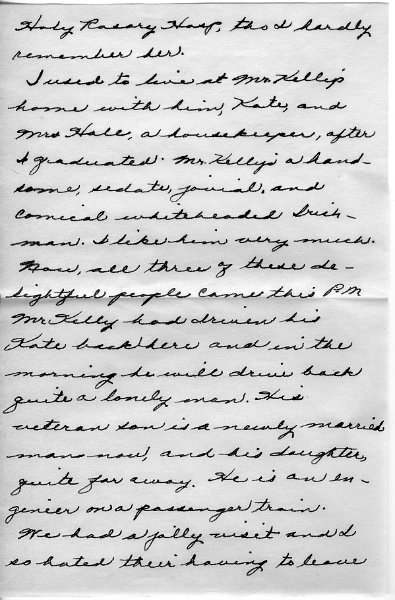 Holy Rosary Hosp, tho I hardly
remember her.
I used to live at Mr. Kelly's
home with him, Kate, and
Mrs Hall, a housekeeper, after
I graduated. Mr. Kelly's a hand-
some, sedate, jovial, and
comical whiteheaded Irish-
man. I like him very much.
Now, all three of these de-
lightful people came this P.M
Mr Kelly had driven his
Kate back here and in the
morning he will drive back
quite a lonely man. His
veteran son is a newly married
man now, and his daughter,
quite far away. He is an en-
gineer on a passenger train.
We had a jolly visit and I
so hated their having to leave